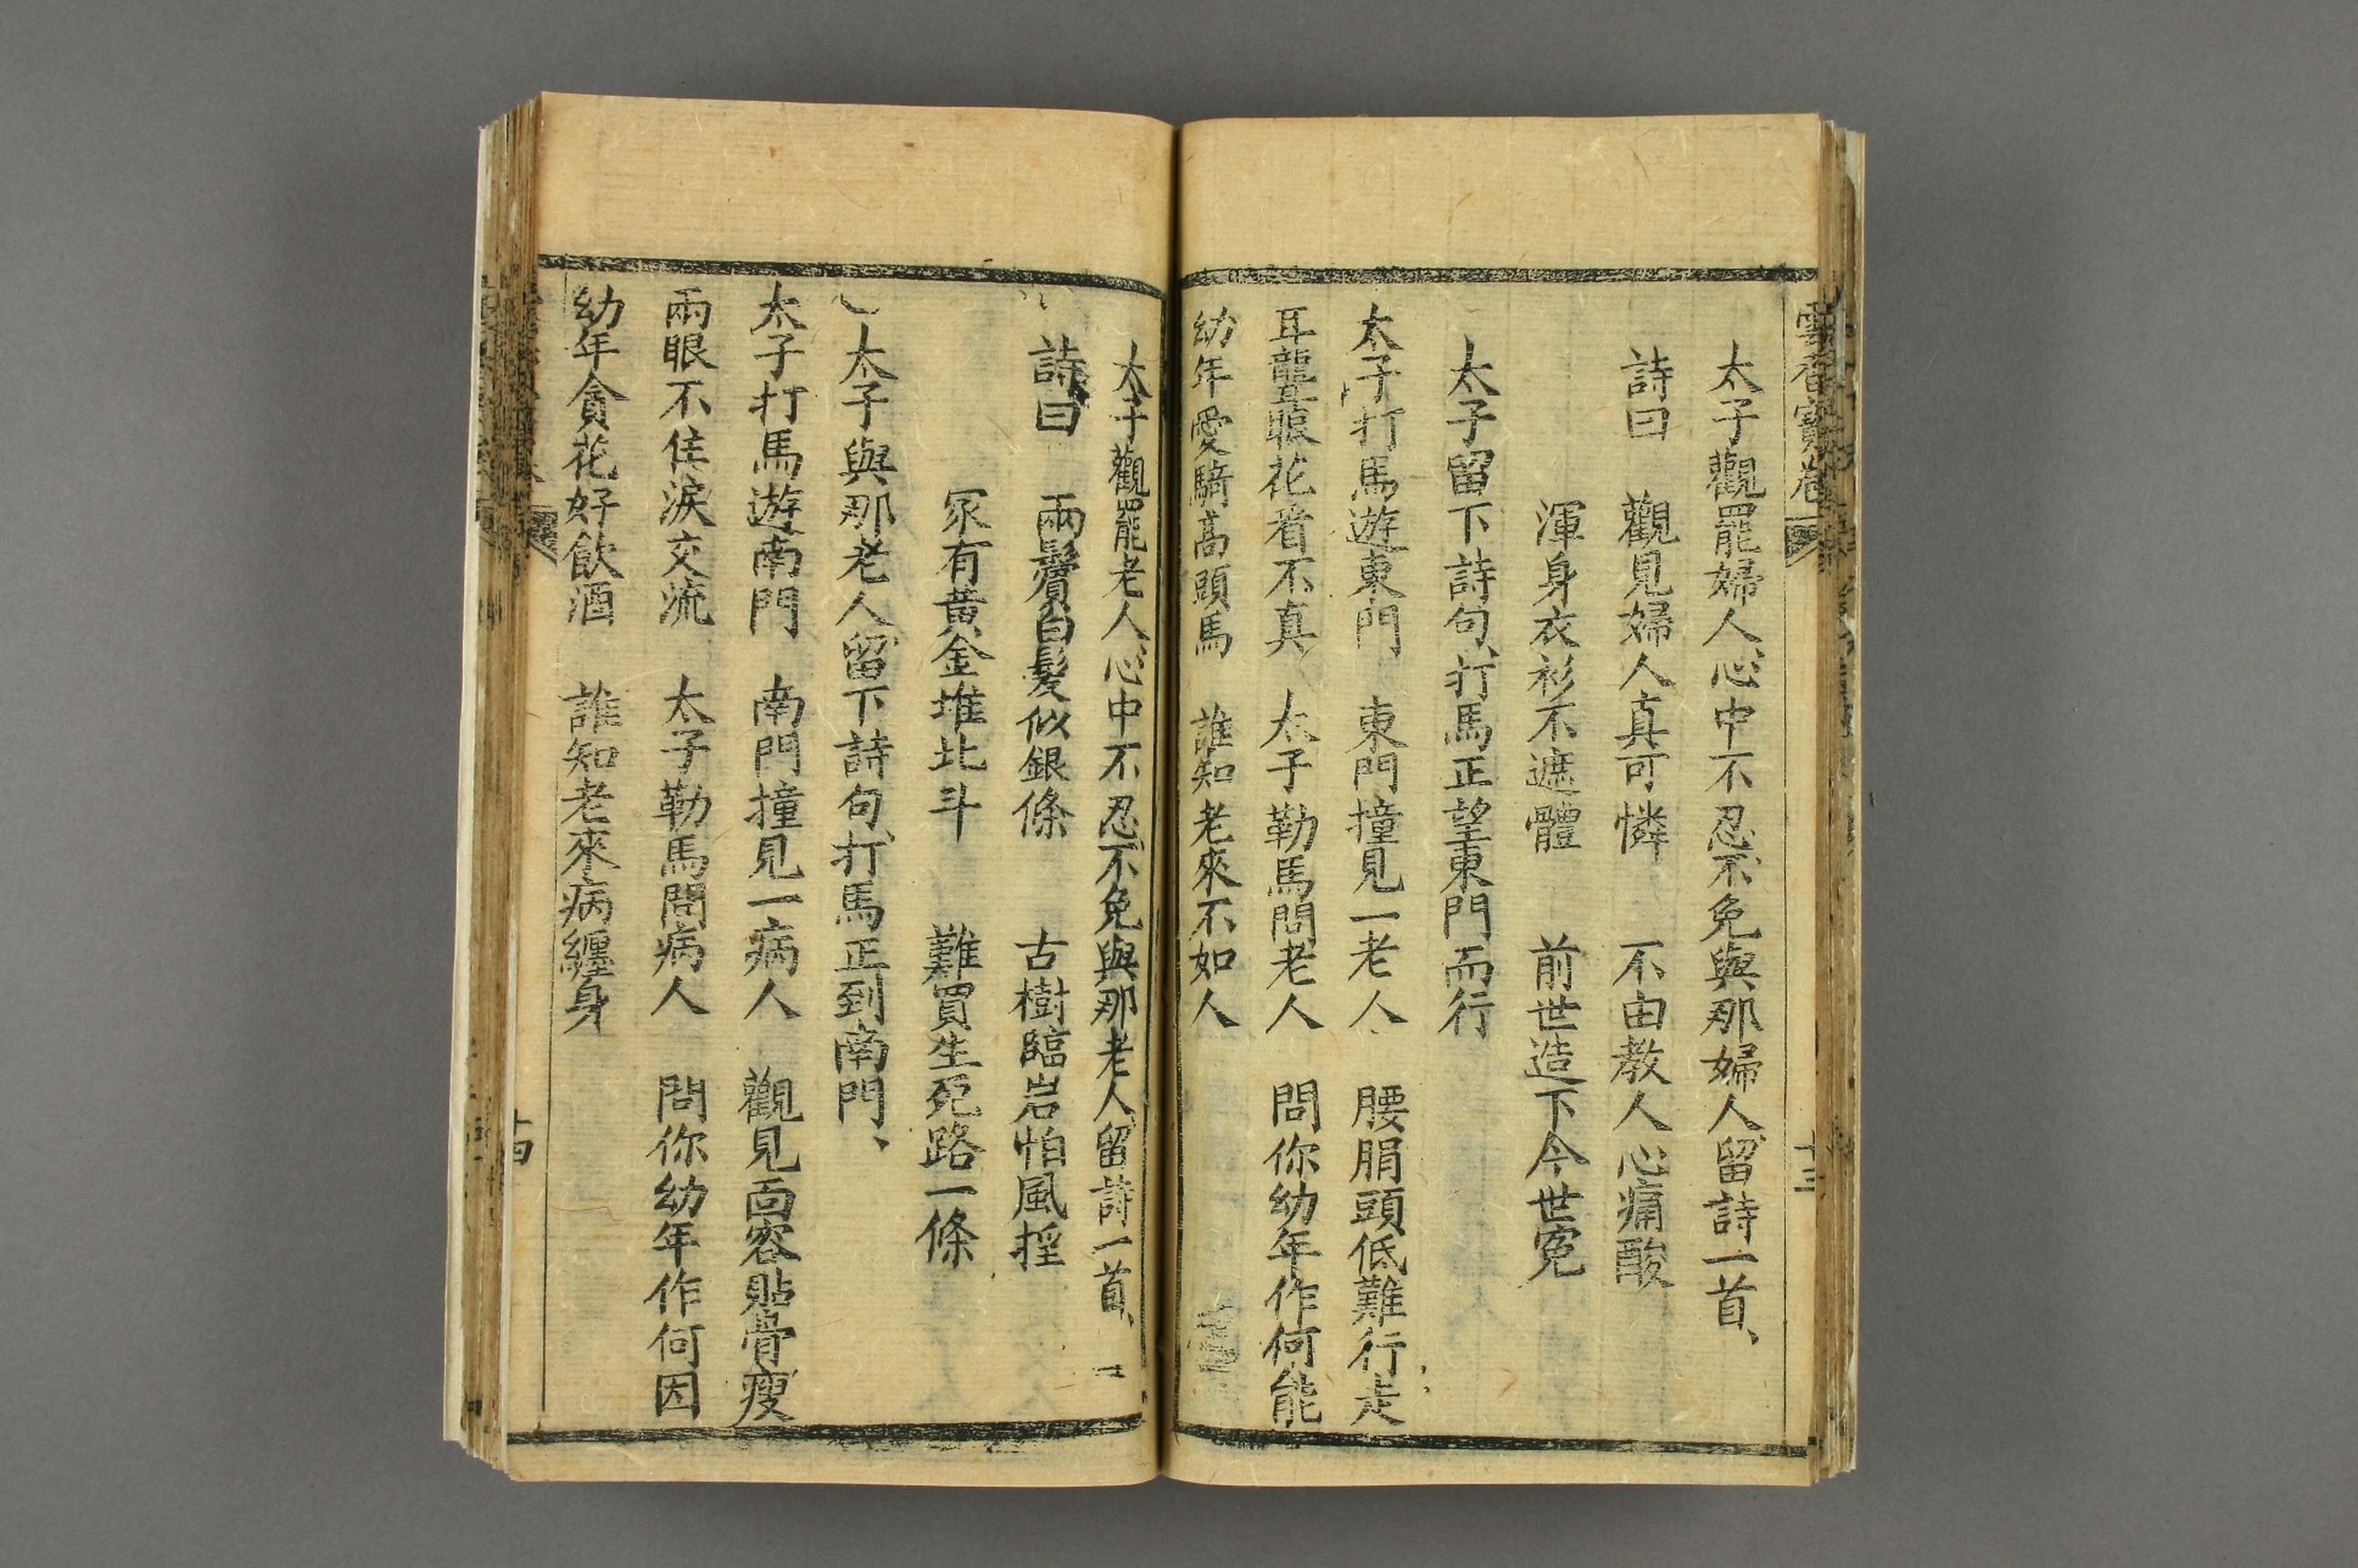 雪香寶卷
十三
太子觀罷婦人、心中不忍、不免與那婦人、留詩一首、
詩曰 觀見婦人真可憐 不由教人心痛酸
渾身衣衫不遮體 前世造下今世冤
太子留下詩句、打馬正望東門而行
太子打馬遊東門 東門撞見一老人 腰肩頭低難行走
耳聾眼花看不真 太子勒馬問老人 問你幼年作何能
幼年愛騎高頭馬 誰知老來不如人
太子觀罷老人、心中不忍、不免與那老人、留詩一首、
詩曰 兩鬢白髮似銀條 古樹臨岩怕風搖
家有黃金堆北斗 難買生死路一條
太子與那老人、留下詩句、打馬正到南門、
太子打馬遊南門 南門撞見一病人 觀見面容貼骨瘦
兩眼不住淚交流 太子勒馬問病人 問你幼年作何因
幼年貪花好飲酒 誰知老來病纏身
十四